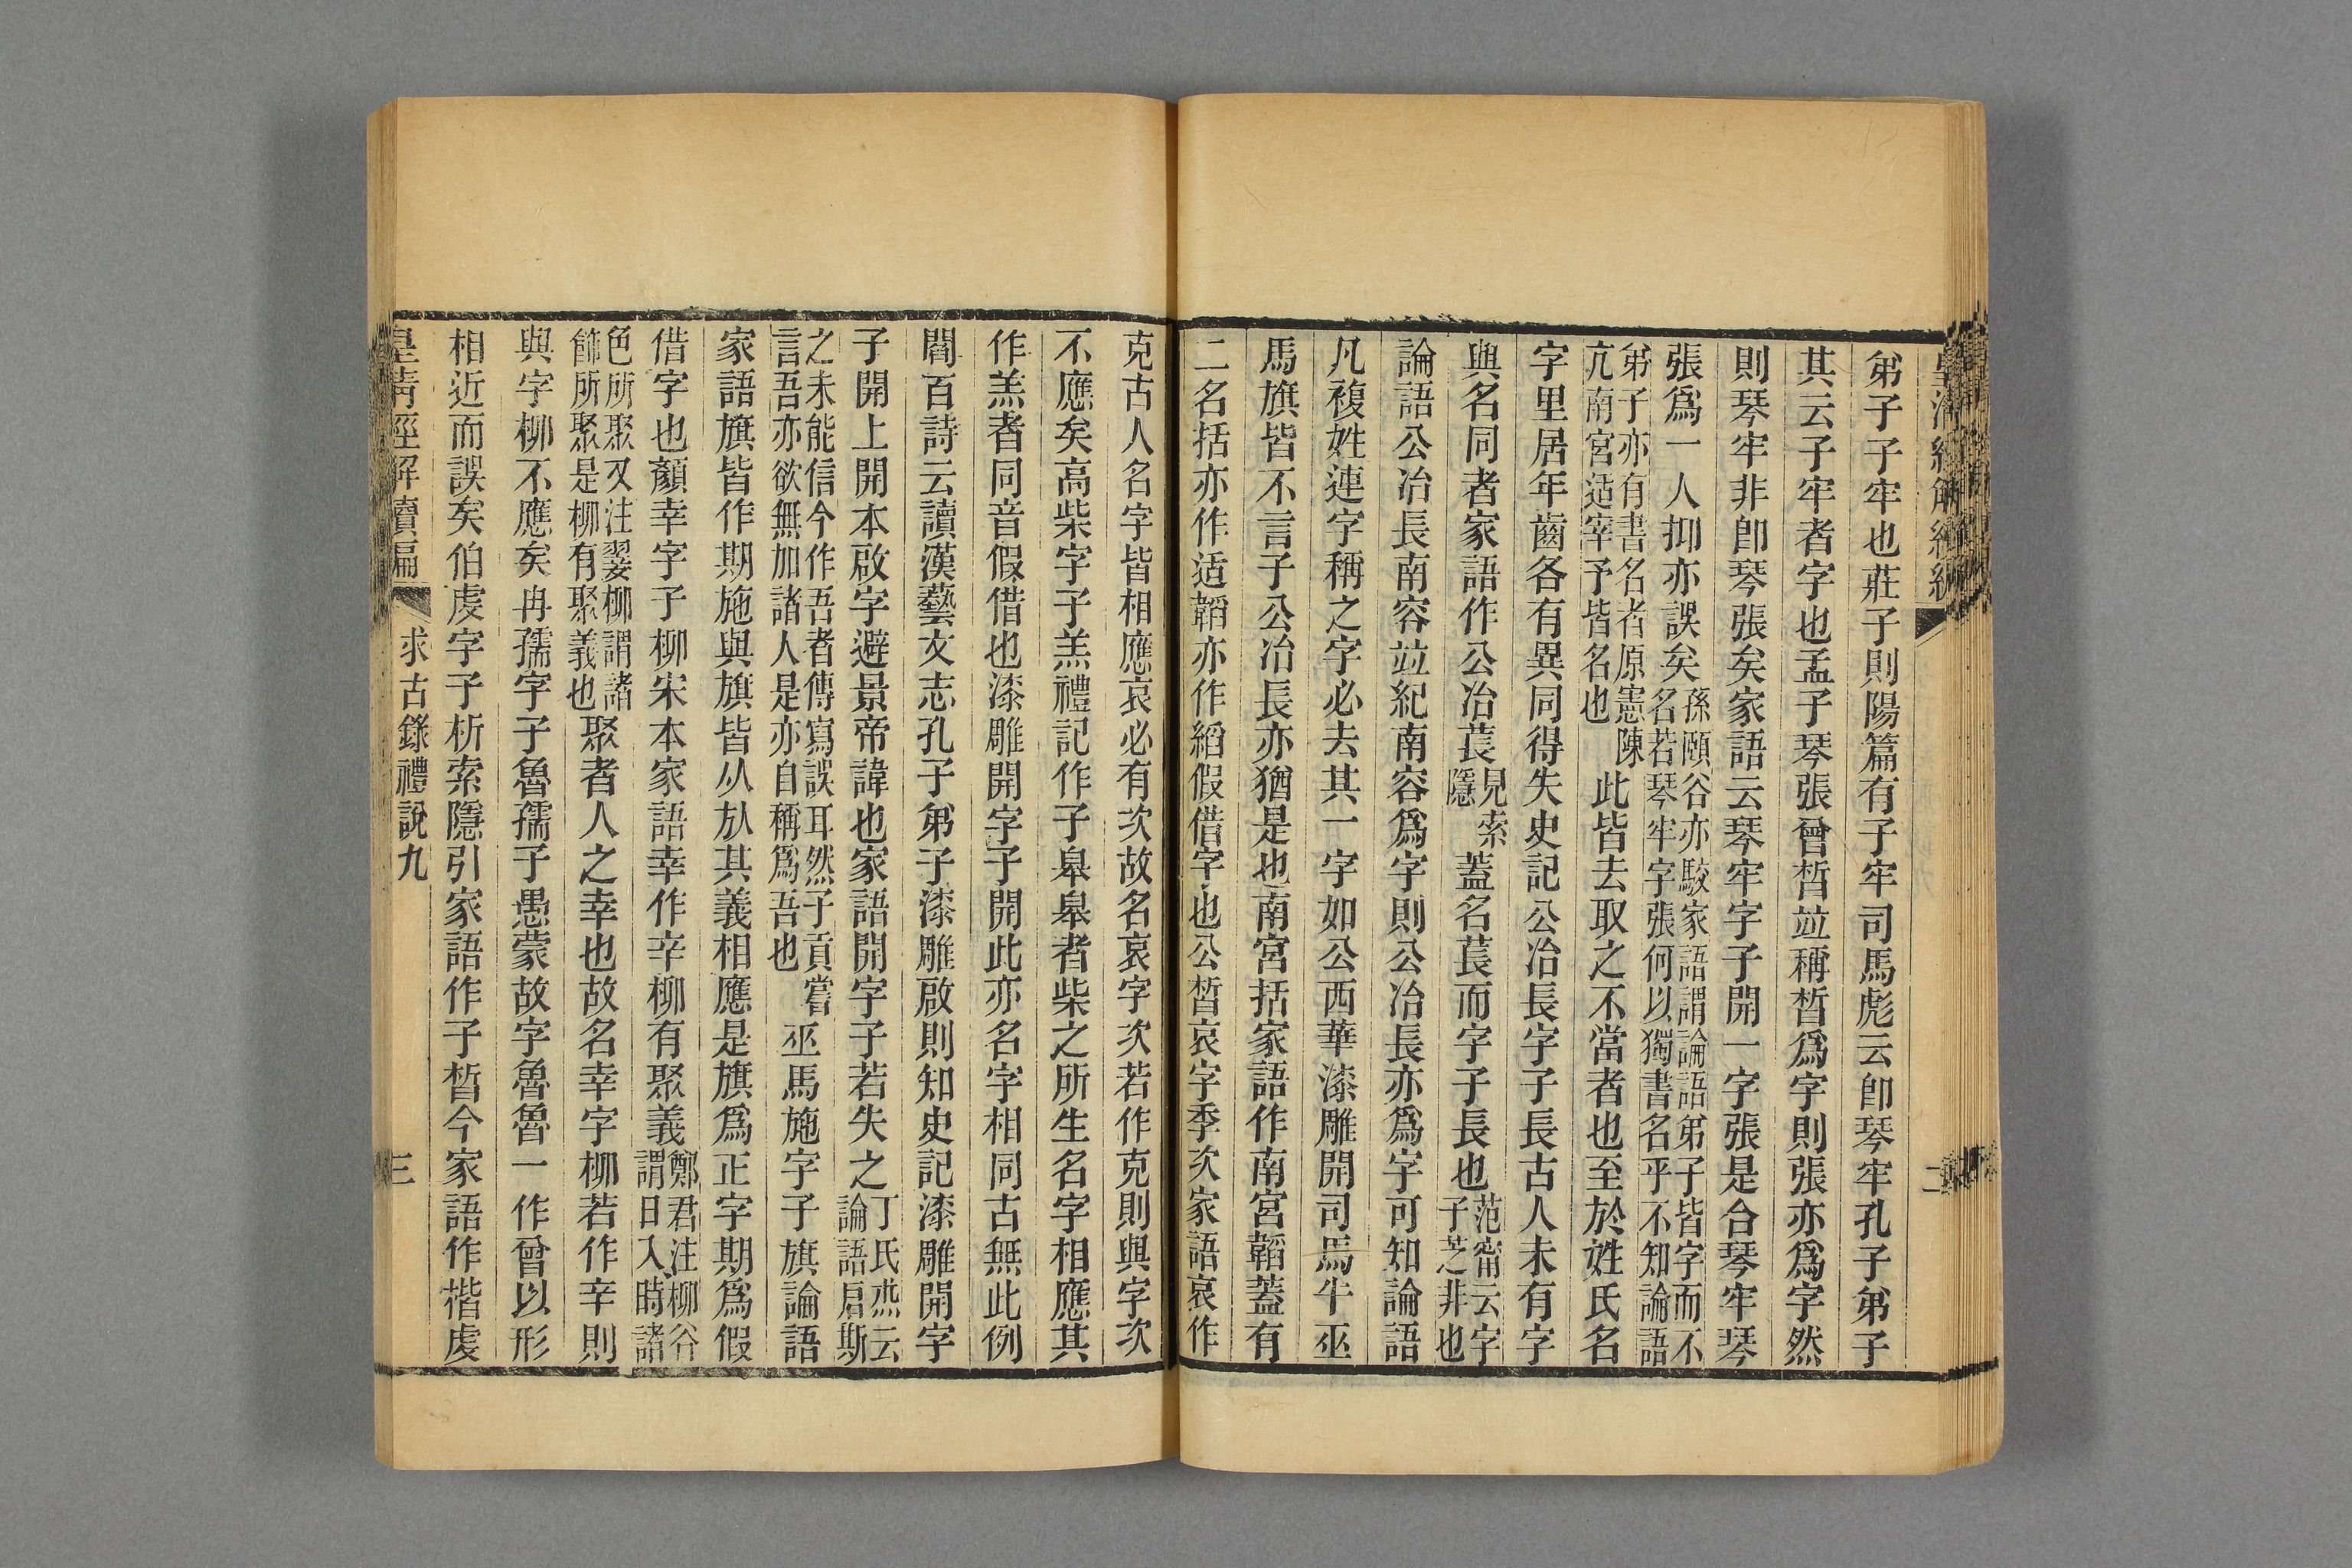 弟子子牢也莊子則陽篇有子牢司馬彪云卽琴牢孔子弟子
其云子牢者字也孟子琴張曾晳竝稱晳爲字則張亦爲字然
則琴牢非卽琴張矣家語云琴牢字子開一字張是合琴牢琴
張爲一人抑亦誤矣孫頤谷亦駁家語謂論語弟子皆字而不名若琴牢字張何以獨書名乎不知論語
弟子亦有書名者原憲陳亢南宮适宰予皆名也此皆去取之不當者也至於姓氏名
字里居年齒各有異同得失史記公冶長字子長古人未有字
與名同者家語作公冶萇見索隱蓋名萇而字子長也范甯云字子芝非也
論語公冶長南容竝紀南容爲字則公冶長亦爲字可知論語
凡複姓連字稱之字必去其一字如公西華漆雕開司馬牛巫
馬旗皆不言子公冶長亦猶是也南宮括家語作南宮韜蓋有
二名括亦作适韜亦作縚假借字也公晳哀字季次家語哀作
克古人名字皆相應哀必有次故名哀字次若作克則與字次
不應矣高柴字子羔禮記作子皋皋者柴之所生名字相應其
作羔者同音假借也漆雕開字子開此亦名字相同古無此例
閻百詩云讀漢藝文志孔子弟子漆雕啟則知史記漆雕開字
子開上開本啟字避景帝諱也家語開字子若失之丁氏烝云論語启斯
之未能信今作吾者傳寫誤耳然子貢嘗言吾亦欲無加諸人是亦自稱爲吾也巫馬施字子旗論語
家語旗皆作期施與旗皆从㫃其義相應是旗爲正字期爲假
借字也顏幸字子柳宋本家語幸作辛柳有聚義鄭君注柳谷謂日入時諸
色所聚又注翣柳謂諸飾所聚是柳有聚義也聚者人之幸也故名幸字柳若作辛則
與字柳不應矣冉孺字子魯孺子愚蒙故字魯魯一作曾以形
相近而誤矣伯虔字子析索隱引家語作子晳今家語作楷虔
皇清經解續編 求古錄禮說九 三